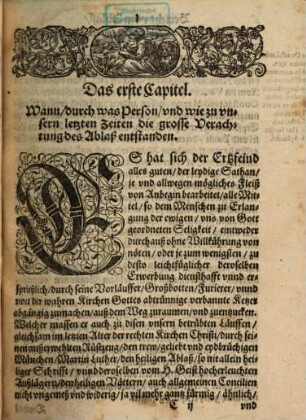 Das erste Capitel.
Wann/durch was Person/vnd wie zu vn-
sern letzten Zeiten die grosse Verach-
tung des Ablaß entstanden.
ES hat sich der Ertzfeind
alles guten/der leydige Sathan/
je vnd allwegen mögliches Fleiß
von Anbegin bearbeitet/alle Mit-
tel/so dem Menschen zu Erlan-
gung der ewigen/vns von Gott
geordneten Seligkeit/eintweder
durchauß ohne Willkührung von
nöten/oder je zum wenigsten/zu
desto leichtfüglicher derselben
Erwerbung diensthafft vnnd er-
sprießlich/durch seine Vorläuffer/Großbotten/Furierer/vnnd
von der wahren Kirchen Gottes abtrünnige verbannte Ketzer
abgängig zumachen/auß dem Weg zuraumen/vnd zuentzucken.
Welcher massen er auch zu disen vnsern betrübten Läuffen/
gleichsam im letzten Alter der rechten Kirchen Christi/durch sei-
nen außerwehlten Rüstzeug/den trew/gelübt vnd eydbrüchigen
München/Martin Luther/den heiligen Ablaß/so nit allein hei-
liger Schrifft/vnnd derselben vom H. Geist hocherleuchten
Außlägern/den heiligen Vättern/auch allgemeinen Concilien
nicht vngemeß vnd widerig/ja vil mehr gantz fürmig/ähnlich/
C ij vnd